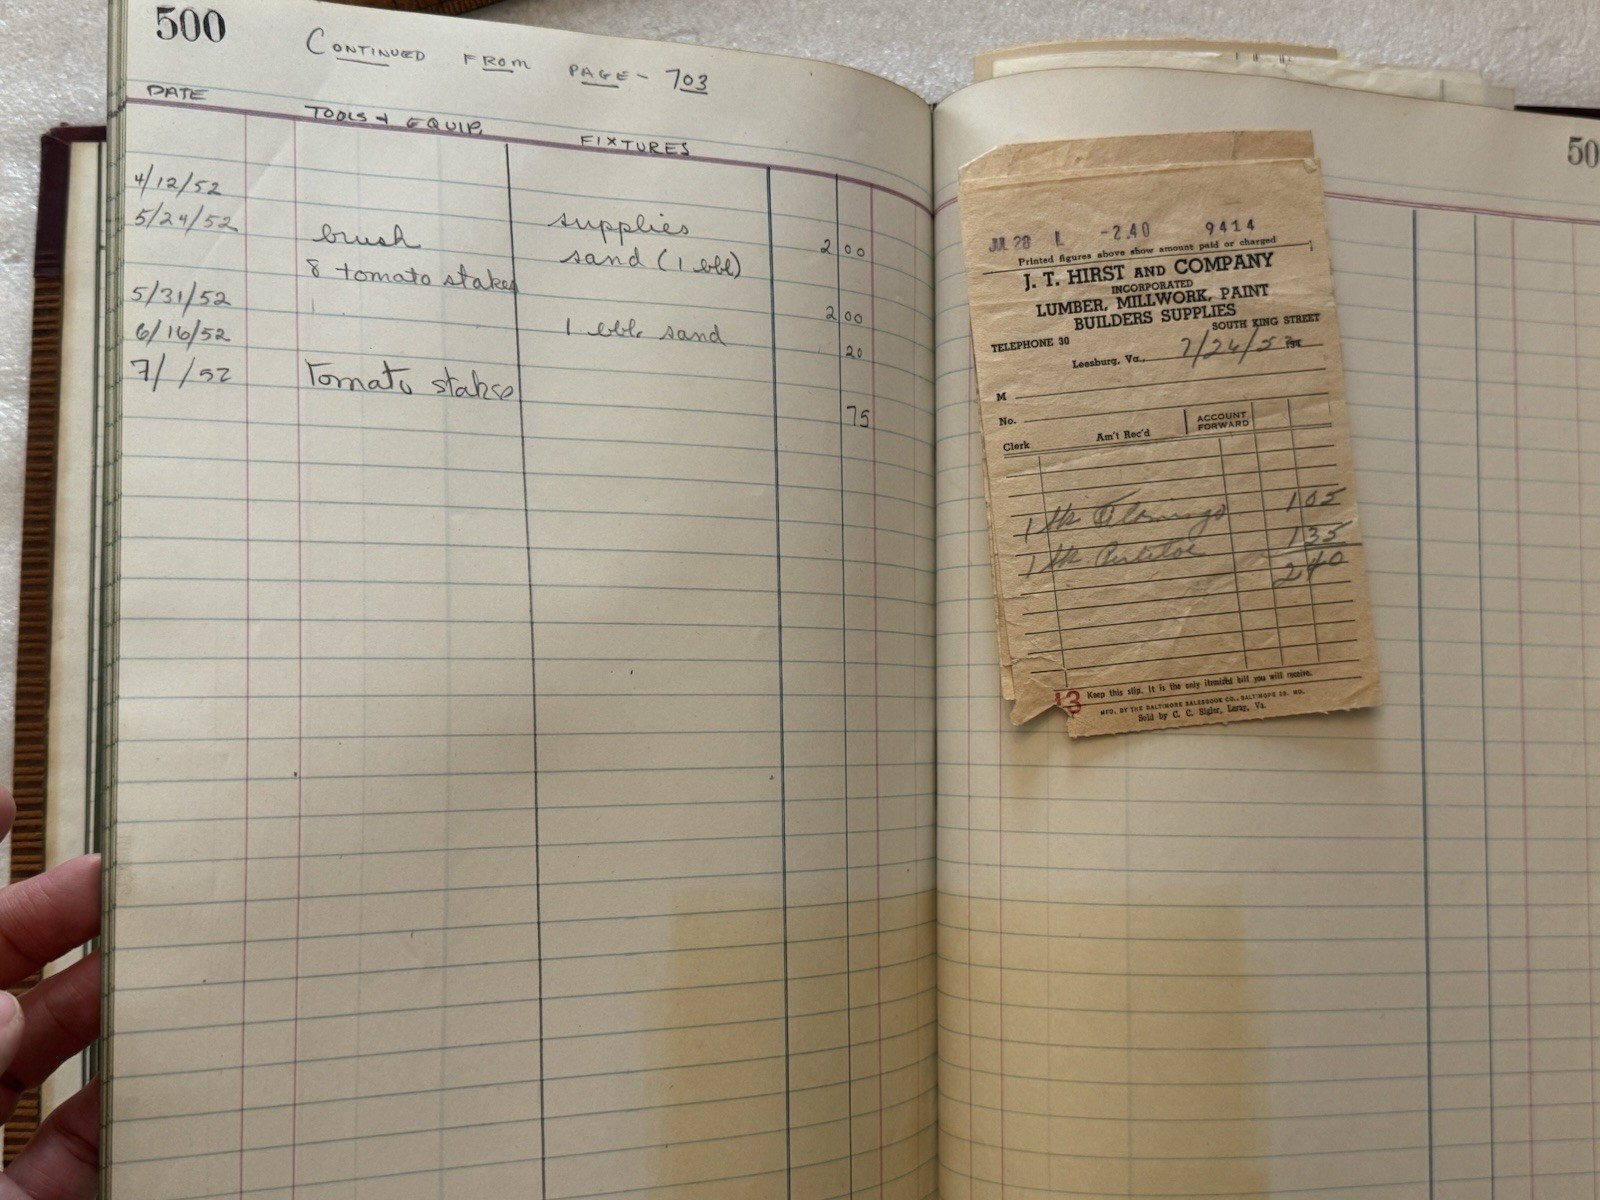 500
CONTINUED FROM PAGE - 703
DATE TOOLS & EQUIP. FIXTURES
4/12/52 supplies 2 00
5/24/52 brush sand (1 bbl)
8 tomato stakes 2 00
5/31/52 1 bbl sand 20
6/16/52
7/ /52 Tomato stakes 75
50
JUL 28 L -2.40 9414
Printed figures above show amount paid or charged
J. T. HIRST AND COMPANY
INCORPORATED
LUMBER, MILLWORK, PAINT
BUILDERS SUPPLIES
SOUTH KING STREET
TELEPHONE 30
Leesburg, Va., 7/26/5
M
No.
ACCOUNT FORWARD
Clerk Am't Rec'd
1 105
1 135
240
13
Keep this slip. It is the only itemized bill you will receive.
MFD. BY THE BALTIMORE SALESBOOK CO., BALTIMORE, MD.
Sold by C. C. Sigler, Luray, Va.